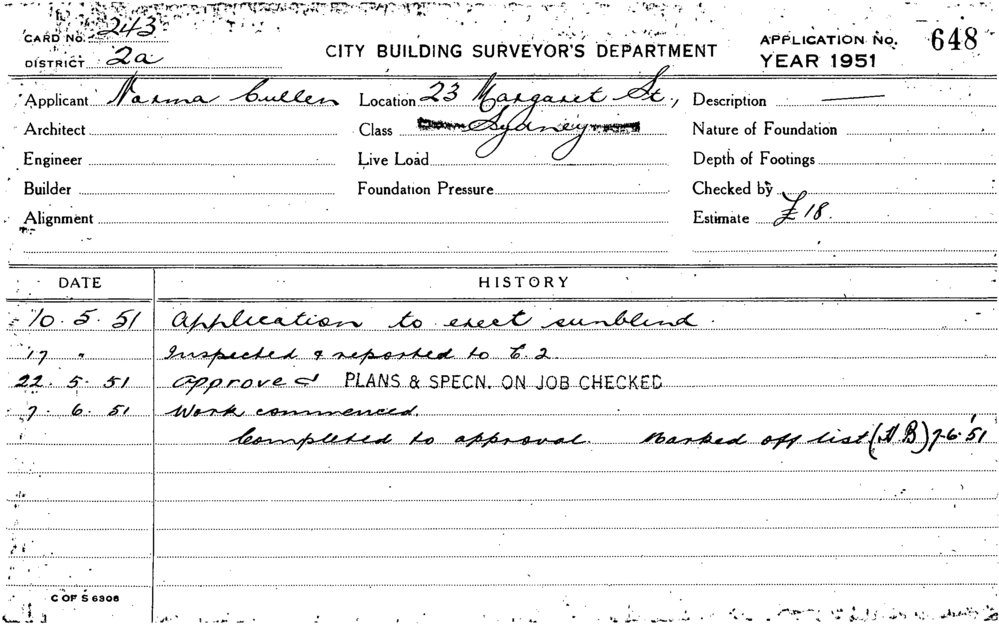 CARD No. 243
DISTRICT 2a
CITY BUILDING SURVEYOR'S DEPARTMENT
APPLICATION No. 648
YEAR 1951
Applicant Norma Cullen Location 23 Margaret St., Description —
Architect Class Sydney Nature of Foundation
Engineer Live Load Depth of Footings
Builder Foundation Pressure Checked by
Alignment Estimate £18.
DATE HISTORY
10. 5. 51 Application to erect sunblind.
17 " Inspected & reported to C.2.
22. 5. 51 Approved PLANS & SPECN. ON JOB CHECKED
7. 6. 51 Work commenced.
Completed to approval. Marked off list (HB) 7.6.51
C OF S 6306